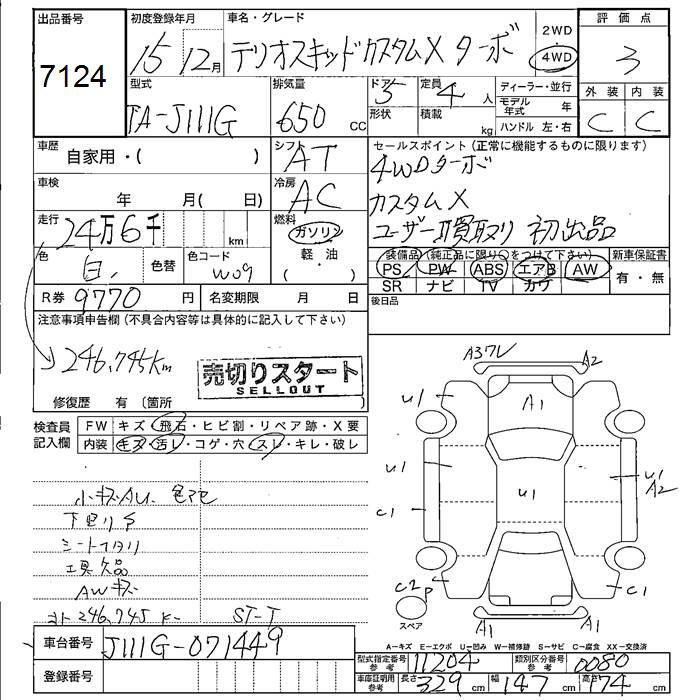 出品番号 初度登録年月 車名・グレード 2WD 評価点
7124 15 12月 テリオスキッドカスタムX ターボ 4WD 3
型式 排気量 ドア 定員 ディーラー・並行 外装 内装
TA-J111G 650 cc 5 4人 モデル年式 年 C C
形状 積載 kg ハンドル 左・右
車歴 自家用・( ) シフト AT セールスポイント(正常に機能するものに限ります)
車検 年 月( 日) 冷房 AC 4WDターボ
カスタムX
走行 24万6千 km 燃料 ガソリン 軽・油 ( ) ユーザー買取り 初出品
色 白 色替 色コード W09 装備品(純正品に限り○をつけて下さい) 新車保証書
PS PW ABS エアB AW 有・無
R券 9770 円 名変期限 月 日 SR ナビ TV カワ
注意事項申告欄(不具合内容等は具体的に記入して下さい) 後日品
246,745Km
売切りスタート
SELLOUT
修復歴 有 〔箇所 〕
検査員記入欄 FW キズ・飛石・ヒビ割・リペア跡・X要
内装 キズ・汚レ・コゲ・穴・スレ・キレ・破レ
A3ワレ A2
U1 A1
U1 U1 U1 A2
C1
C2P C1
スペア A1 A1
小キズAU 色アセ
下廻りサ
シートヘタリ
工具欠品
AWキズ
メーター246,745K ST-T
車台番号 J111G-071449
登録番号
A-キズ E-エクボ U-凹み W-補修跡 S-サビ C-腐食 XX-交換済
型式指定番号 参考 11204 類別区分番号 参考 0080
車庫証明用 参考 長さ 329 cm 幅 147 cm 高さ 174 cm